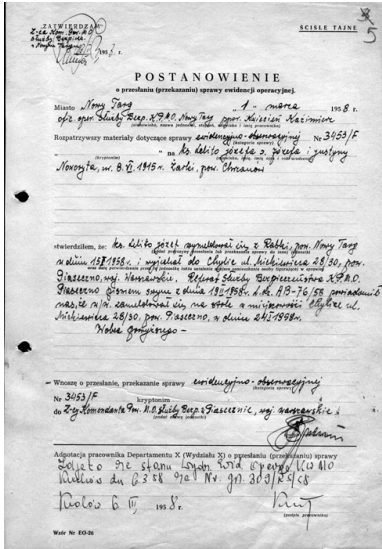 ZATWIERDZAM
Z-ca Kom. Pow. M.O.
Służby Bezp.
w Nowym Targu
ŚCIŚLE TAJNE
5
POSTANOWIENIE
o przesłaniu (przekazaniu) sprawy ewidencji operacyjnej.
Miasto Nowy Targ "1" marca 1958 r.
ofic. oper. Służby Bezp. K.P.M.O. Nowy Targ ppor. Kwiecień Kazimierz
Rozpatrzywszy materiały dotyczące sprawy ewidencyjno-obserwacyjnej Nr 3453/F
(kategoria sprawy)
" — " na ks. Lelito Józefa s. Józefa i Justyny
(kryptonim)
Noworyta, ur. 8. VI. 1915 r. Żarki, pow. Chrzanów
stwierdziłem, że: ks. Lelito Józef wymeldował się z Rabki, pow. Nowy Targ
w dniu 1958 r. i wyjechał do Chylic ul. Mickiewicza 28/30, pow.
Piaseczno, woj. Warszawskie. Referat Służby Bezpieczeństwa K.P.M.O.
Piaseczno pismem swym z dnia 1958 r. L.dz. AB-76/58 powiadomił
nas, że w/w. zameldował się na stałe w miejscowości Chylice ul.
Mickiewicza 28/30, pow. Piaseczno, w dniu 24 I 1958 r.
Wobec powyższego —
— Wnoszę o przesłanie, przekazanie sprawy ewidencyjno-obserwacyjnej
(kategoria sprawy)
Nr 3453/F kryptonim
do Z-cy Komendanta Pow. M.O. Służby Bezp. w Piasecznie, woj. warszawskie
Adnotacja pracownika Departamentu X (Wydziału X) o przesłaniu (przekazaniu) sprawy
Zdjęto ze stanu Wydz. Ewid. Operac. K.W.MO
Kraków dn. 6.3.58 za Nr.
Kraków 6. III. 1958 r.
(podpis pracownika)
Wzór Nr EO-26